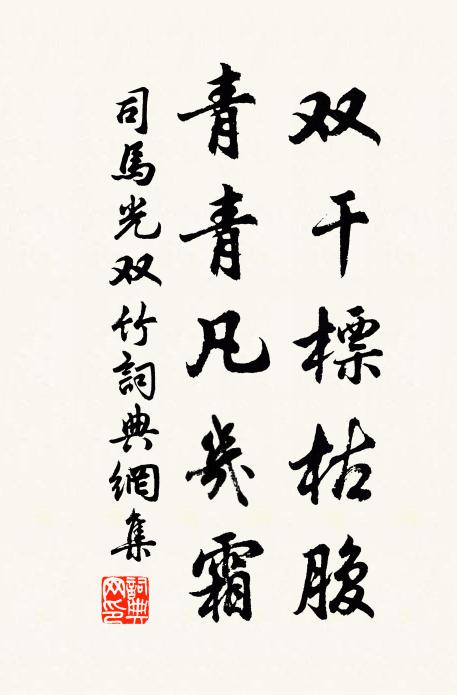 双干標枯腹
青青凡幾霜
司馬光双竹詞典網集
詞典
网印